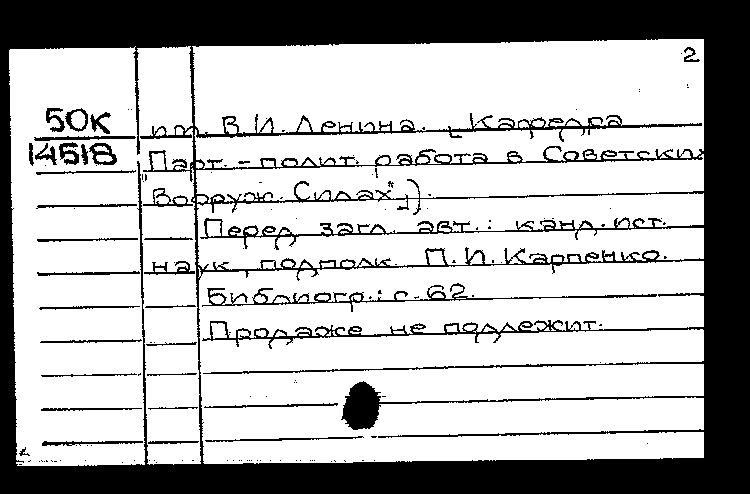 2
50К им. В.И. Ленина. [Кафедра
14518 "Парт.-полит. работа в Советских
Вооруж. Силах"]).
Перед загл. авт.: канд. ист.
наук, подполк. П.И. Карпенко.
Библиогр.: с. 62.
Продаже не подлежит.